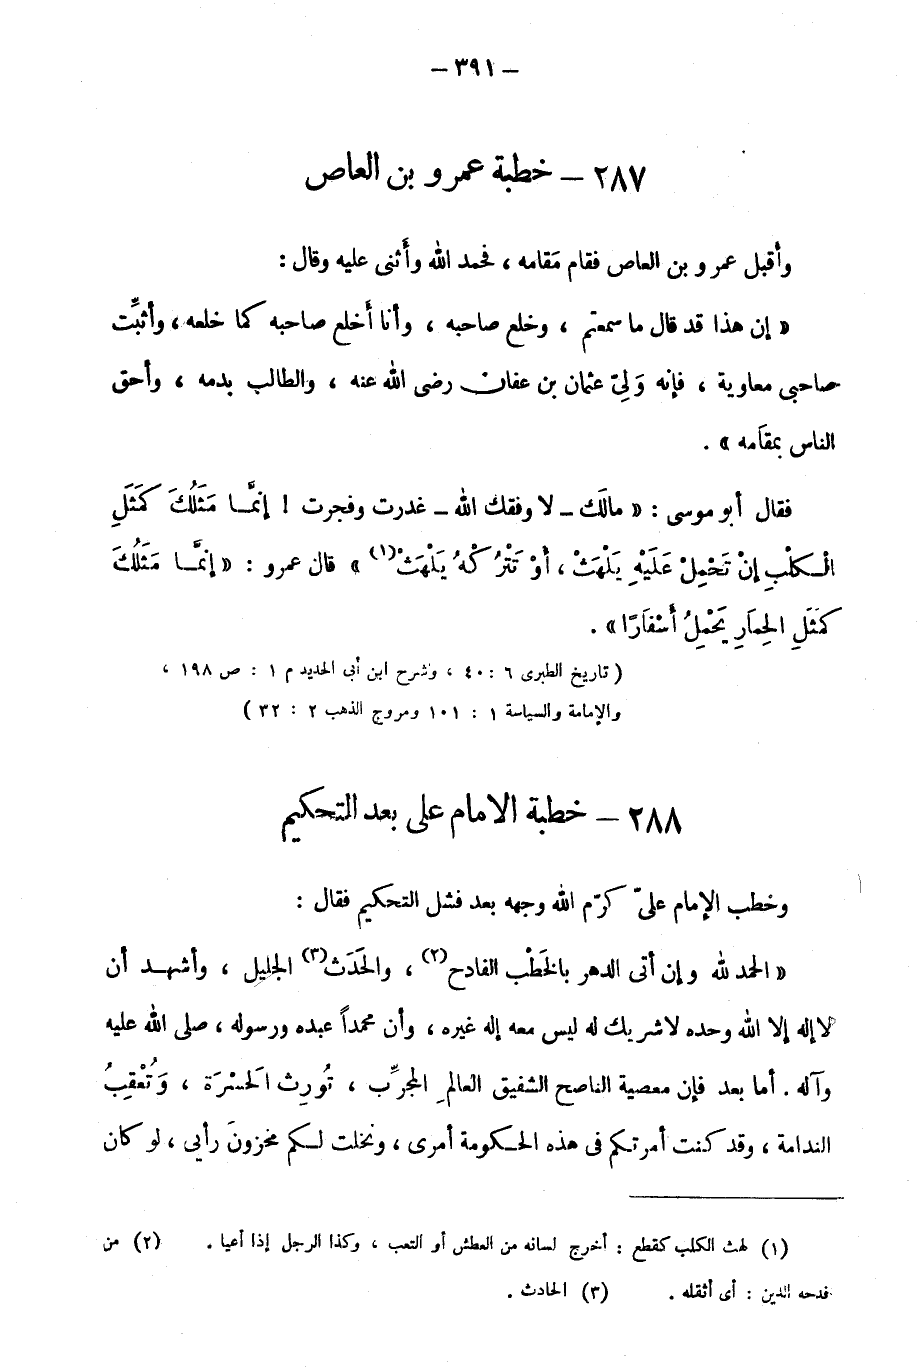 — ٣٩١ —
٢٨٧ — خطبة عمرو بن العاص
وأقبل عمرو بن العاص فقام مَقامه ، فحمد الله وأَثنى عليه وقال :
« إن هذا قد قال ما سمعتم ، وخلع صاحبه ، وأنا أَخلع صاحبه كما خلعه ، وأثبِّت
صاحبى معاوية ، فإنه وَلِىّ عثمان بن عفان رضى الله عنه ، والطالب بدمه ، وأحق
الناس بمقَامه » .
فقال أبو موسى : « مالَك – لا وفقك الله – غدرت وفجرت ! إنمَّا مَثَلُكَ كَمَثَلِ
الْكلْبِ إنْ تَحْمِلْ عَلَيْهِ يَلْهَثْ ، أوْ تَتْرُكْهُ يَلْهَثْ (١) » قال عمرو : « إنمَّا مَثَلُكَ
كَمَثَلِ الحِمَارِ يَحْمِلُ أَسْفَارًا » .
( تاريخ الطبرى ٦ : ٤٠ ، وشرح ابن أبى الحديد م ١ : ص ١٩٨ ،
والإمامة والسياسة ١ : ١٠١ ومروج الذهب ٢ : ٣٢ )
٢٨٨ — خطبة الامام على بعد التحكيم
وخطب الإمام علىّ كرّم الله وجهه بعد فشل التحكيم فقال :
« الحمد لله وإن أتى الدهر بالخَطْب الفادح (٢) ، والحَدَث (٣) الجليل ، وأشهد أن
لا إله إلا الله وحده لا شريك له ليس معه إله غيره ، وأن محمداً عبده ورسوله ، صلى الله عليه
وآله . أما بعد فإن معصية الناصح الشفيق العالمِ المجرِّب ، تُورِث الحَسْرَة ، وَتُعْقِبُ
الندامة ، وقد كنت أمرتكم فى هذه الحكومة أمرى ، ونخلت لكم مخزونَ رأيى ، لو كان
(١) لهث الكلب كقطع : أخرج لسانه من العطش أو التعب ، وكذا الرجل إذا أعيا . (٢) من
فدحه الدين : أى أثقله . (٣) الحادث .